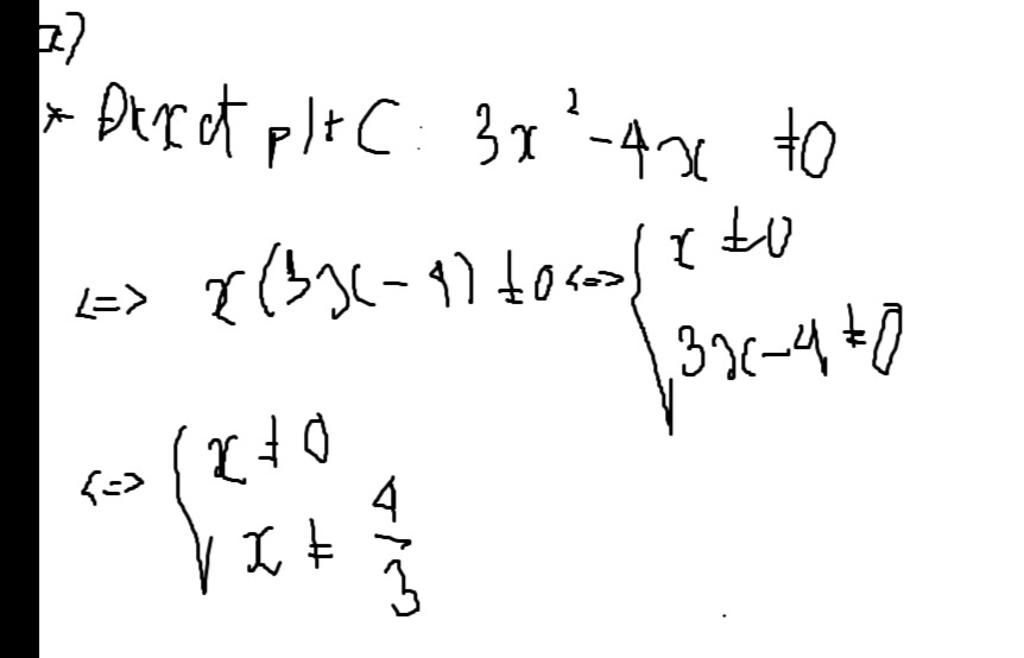 * Đkxđ pltC: 3x² - 4x ≠ 0
<=> x(3x - 4) ≠ 0 <=> { x ≠ 0
3x - 4 ≠ 0
<=> { x ≠ 0
x ≠ 4/3